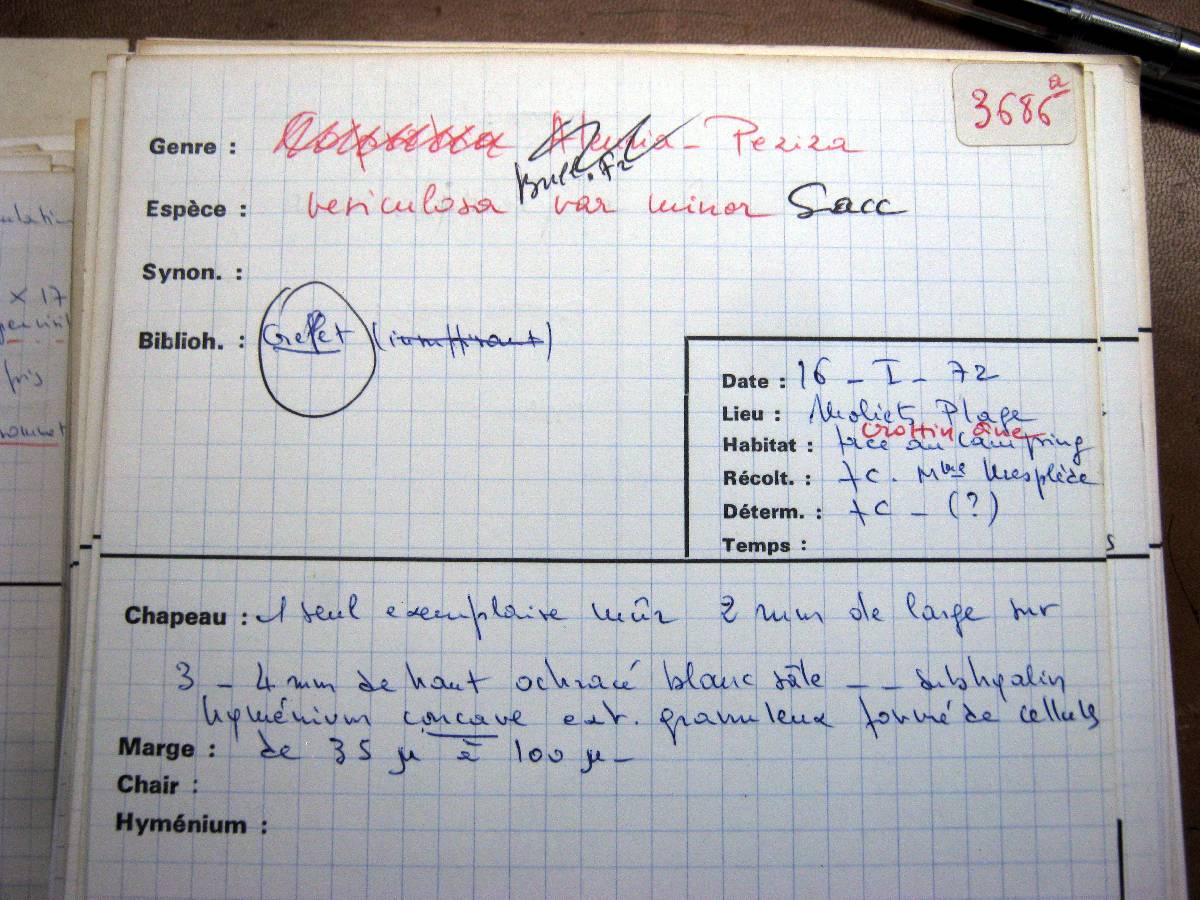 3686a
Genre : Aleuria - Peziza
Bull. 72
Espèce : vesiculosa var minor Sacc
Synon. :
Biblioh. : Grelet (insuffisant)
Date : 16 - I - 72
Lieu : Moliets Plage
Crottin âne
Habitat : face au camping
Récolt. : FC. Mme Mesplède
Déterm. : FC - (?)
Temps :
Chapeau : 1 seul exemplaire mûr 2 mm de large sur
3 - 4 mm de haut ochracé blanc sâle - - subhyalin
hyménium concave ext. granuleux formé de cellules
Marge : de 35 µ à 100 µ -
Chair :
Hyménium :
x 17